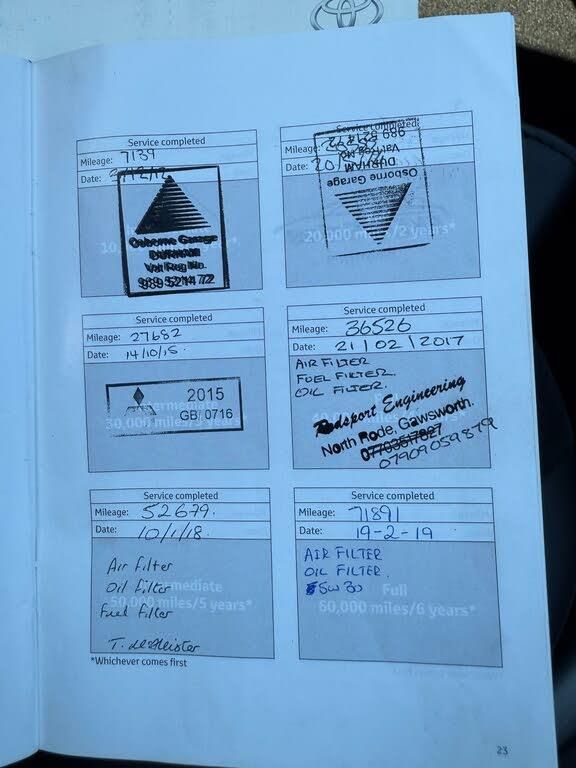 Service completed
Mileage: 7139
Date:
10,
Osborne Garage
DURHAM
Vat Reg No.
989 5214 72
Service completed
Mileage:
Date:
20,000 miles/2 years*
Osborne Garage
DURHAM
Vat Reg No.
989 5214 72
Service completed
Mileage: 27682
Date: 14/10/15.
Intermediate
30,000 miles/3 years*
2015
GB/0716
Service completed
Mileage: 36526
Date: 21/02/2017
AIR FILTER
FUEL FILTER.
OIL FILTER.
Redsport Engineering
North Rode, Gawsworth.
07909059879
Service completed
Mileage: 52679.
Date: 10/1/18.
Air filter
Oil filter
Fuel filter
Intermediate
50,000 miles/5 years*
T.
Service completed
Mileage: 71891
Date: 19-2-19
AIR FILTER
OIL FILTER.
5W30
Full
60,000 miles/6 years*
*Whichever comes first
23